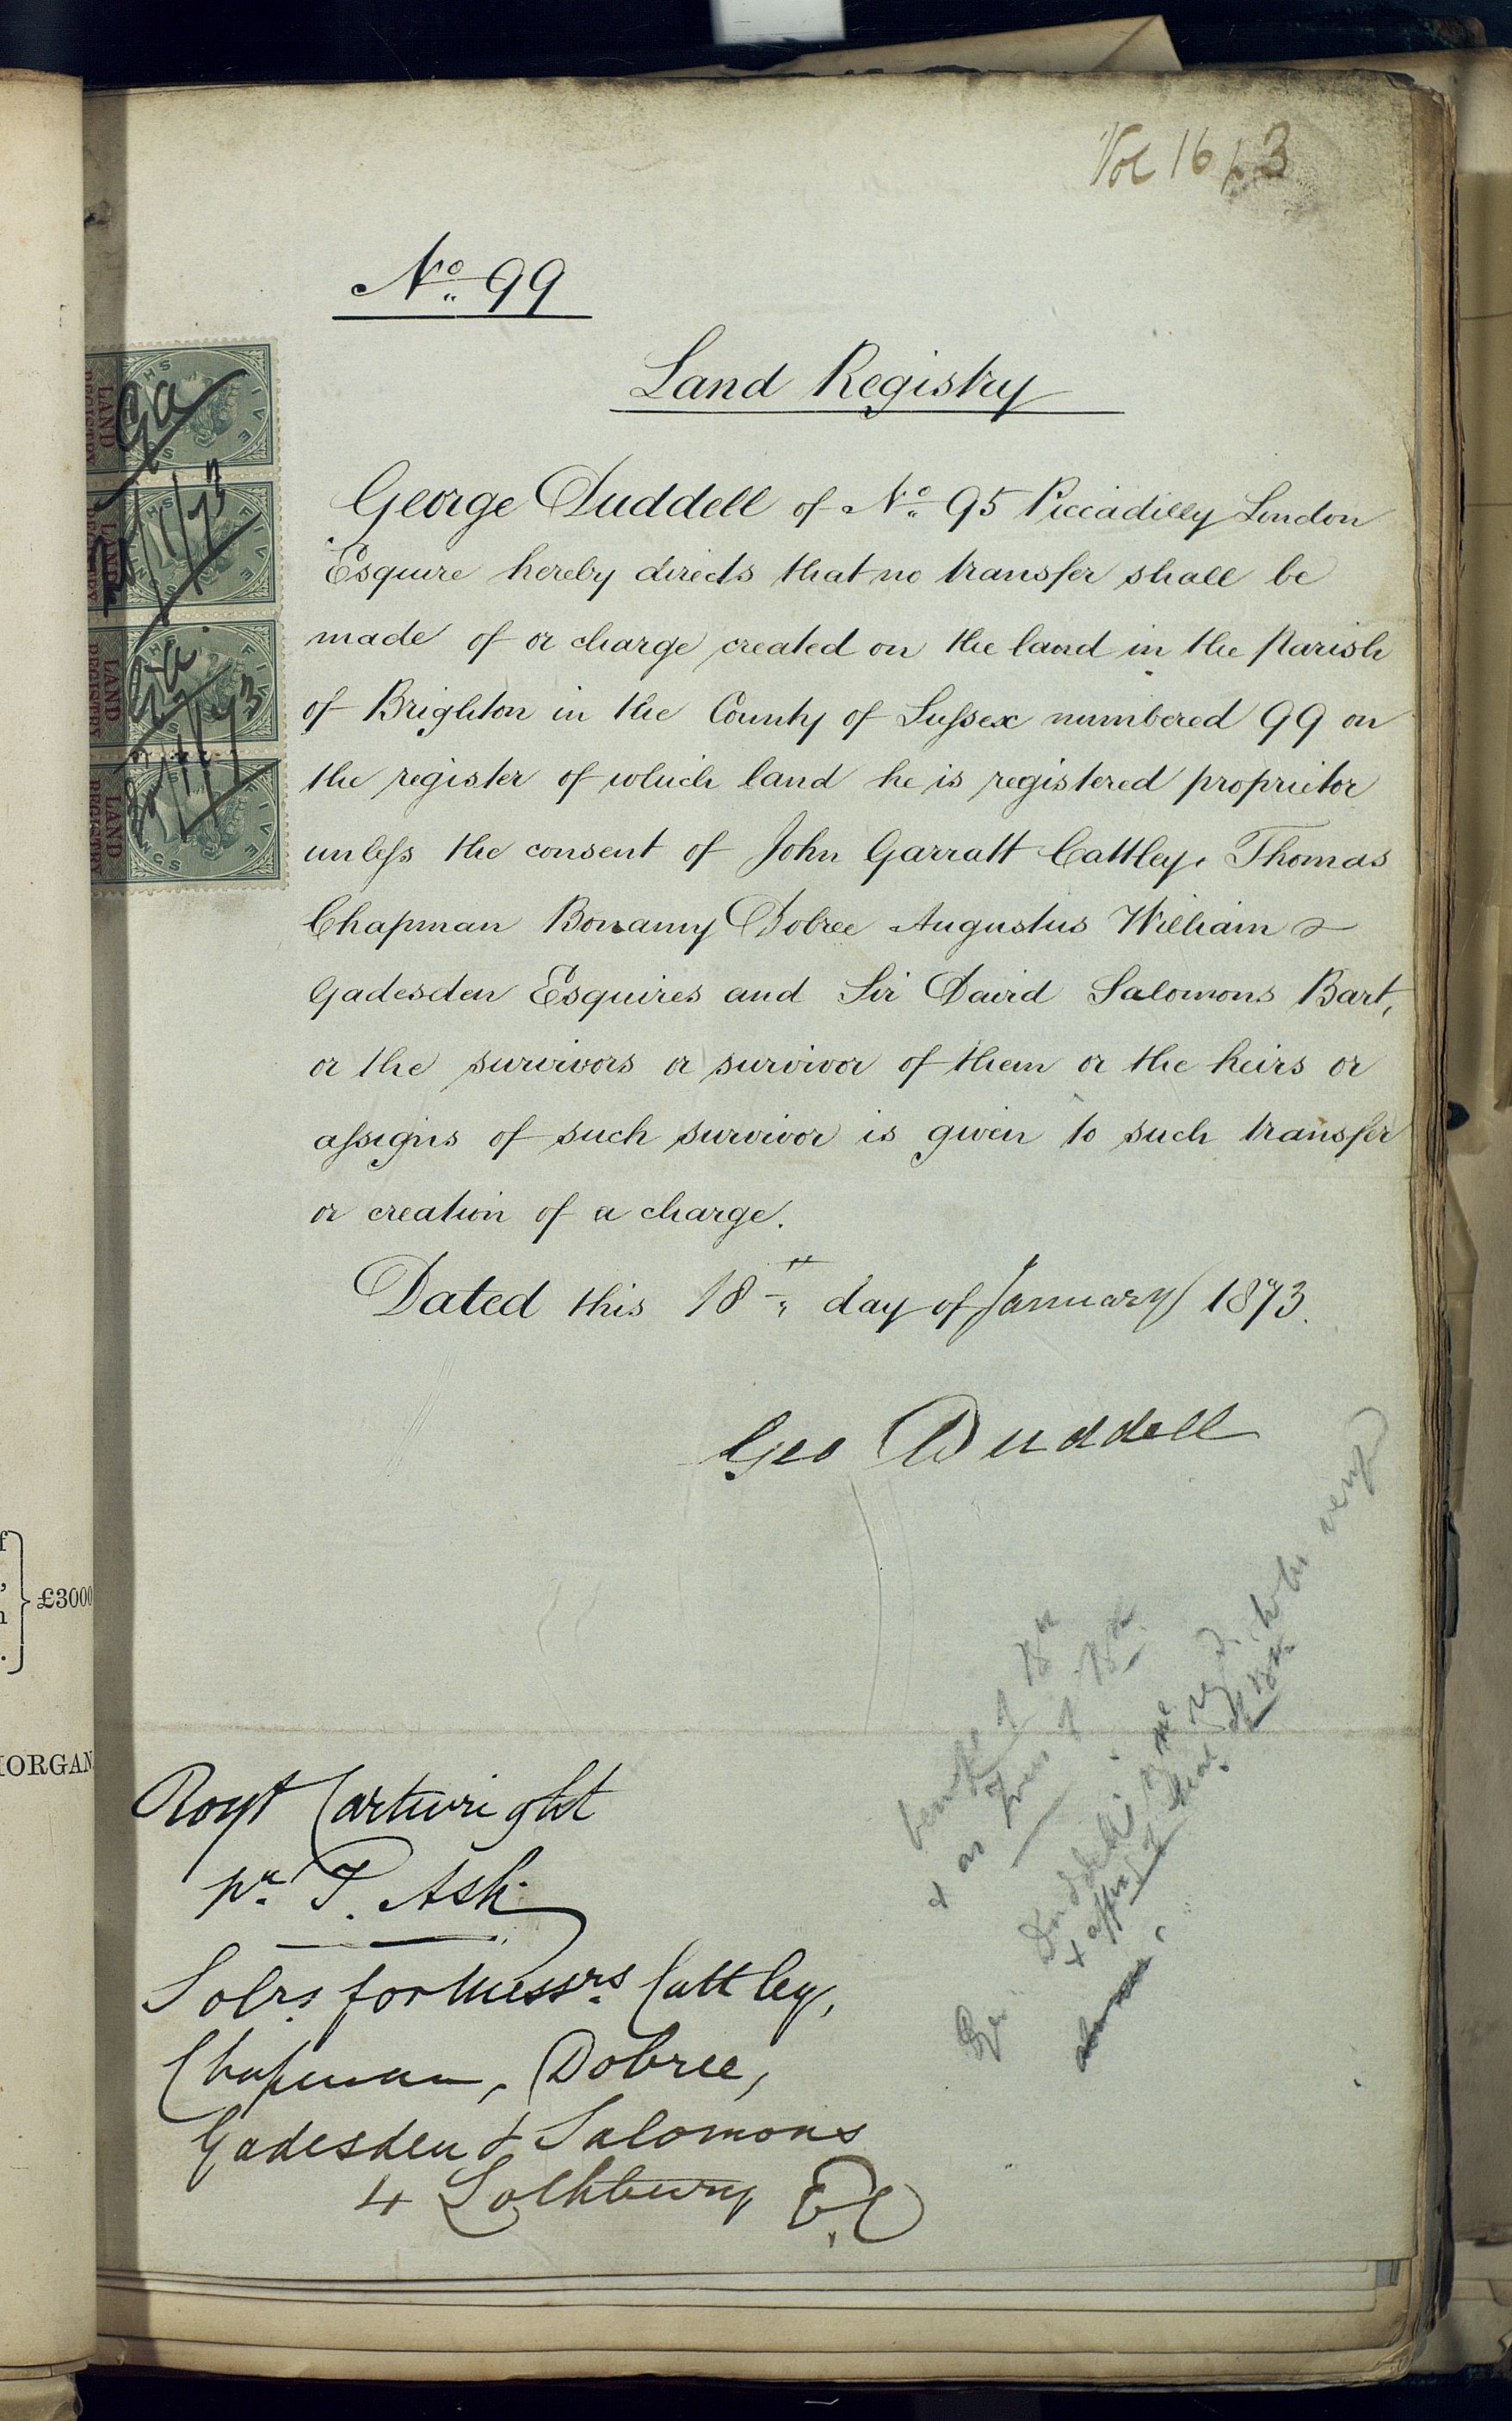 Vol 16 p 3
No 99
Land Registry
George Duddell of No 95 Piccadilly London
Esquire hereby directs that no transfer shall be
made of or charge created on the land in the Parish
of Brighton in the County of Sussex numbered 99 on
the register of which land he is registered proprietor
unless the consent of John Garratt Cattley, Thomas
Chapman Bonamy Dobree Augustus William
Gadesden Esquires and Sir David Salomons Bart,
or the survivors or survivor of them or the heirs or
assigns of such survivor is given to such transfer
or creation of a charge.
Dated this 18th day of January 1873.
Geo Duddell
Cartwright
pr T. Ash
Solrs for Messrs Cattley,
Chapman, Dobree,
Gadesden & Salomons
4 Lothbury E.C
LAND REGISTRY
FIVE
LAND REGISTRY
FIVE
LAND REGISTRY
FIVE
LAND REGISTRY
FIVE
£3000
MORGAN